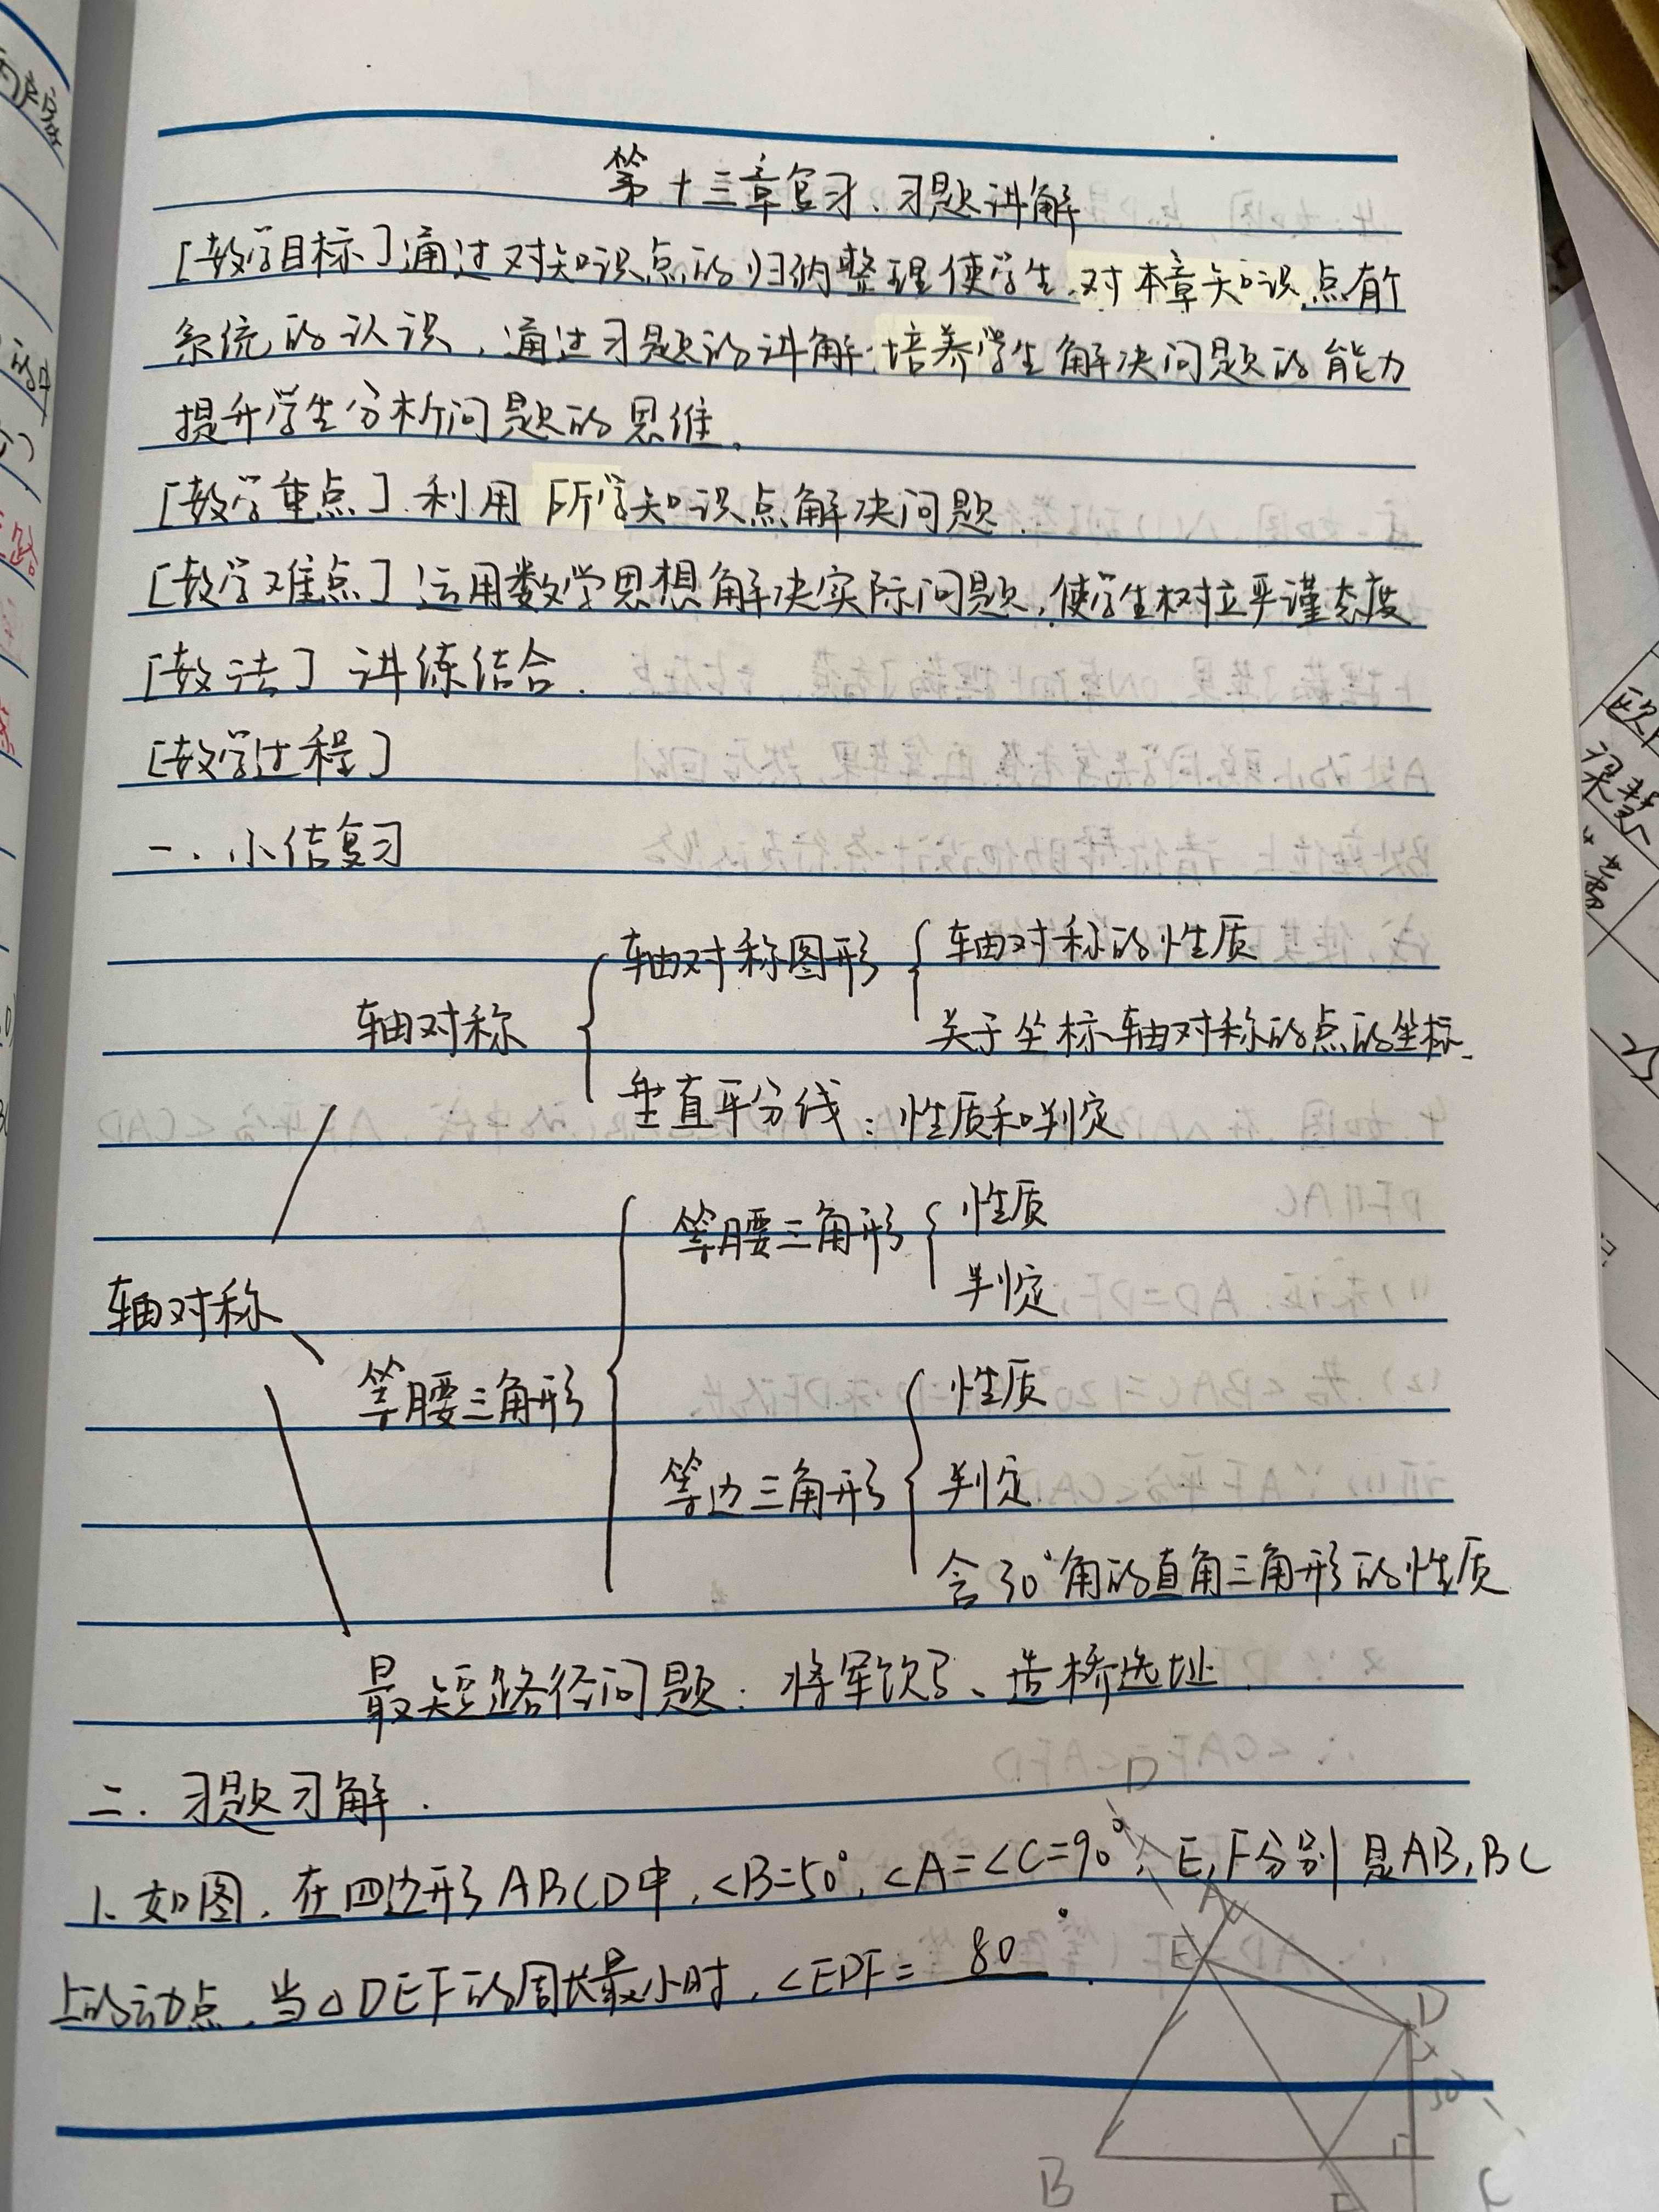 第十三章复习、习题讲解
[教学目标]通过对知识点的归纳整理使学生对本章知识点有个
系统的认识，通过习题的讲解培养学生解决问题的能力
提升学生分析问题的思维。
[教学重点]利用所学知识点解决问题.
[教学难点]运用数学思想解决实际问题，使学生树立严谨态度
[教法] 讲练结合.
[教学过程]
一、小结复习
轴对称图形 轴对称的性质
轴对称 关于坐标轴对称的点的坐标.
垂直平分线：性质和判定
等腰三角形 性质
判定
轴对称
等腰三角形
性质
等边三角形 判定
含30°角的直角三角形的性质
最短路径问题：将军饮马、造桥选址.
二. 习题习解.
1. 如图，在四边形ABCD中，<B=50°，<A=<C=90°，E,F分别是AB,BC
上的动点，当△DEF的周长最小时，<EDF= 80°.
D
A
E
D
50
B
F
C